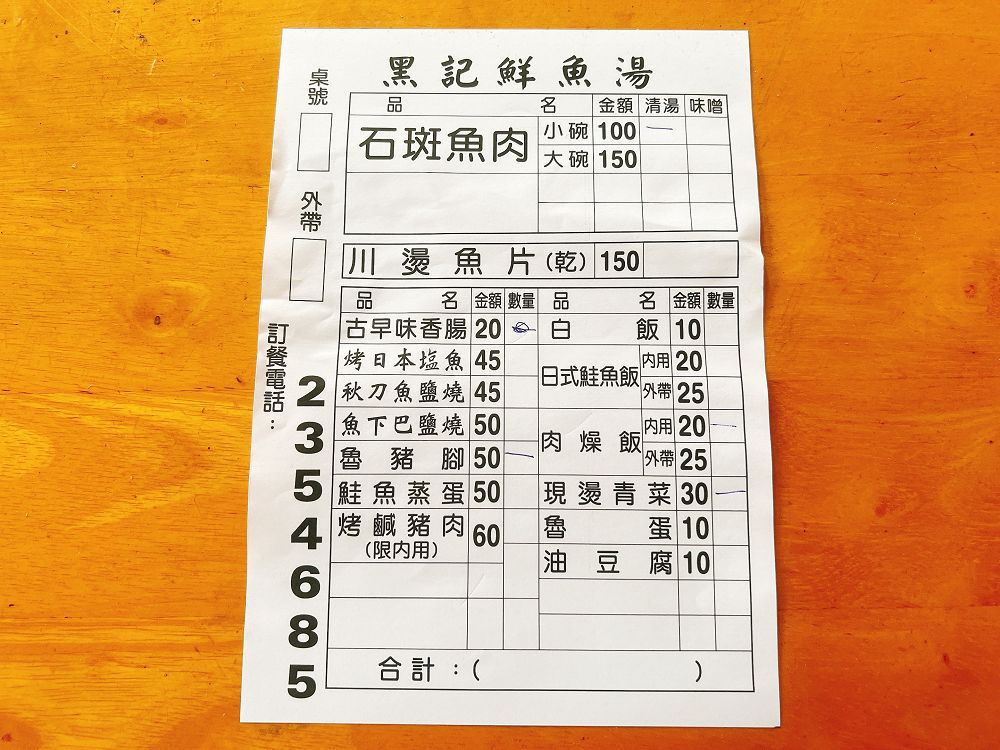 黑記鮮魚湯
桌號
外帶
訂餐電話：
2354685
品名 金額 清湯 味噌
石斑魚肉 小碗 100 一
大碗 150
川燙魚片(乾) 150
品名 金額 數量 品名 金額 數量
古早味香腸 20 白飯 10
烤日本塩魚 45 日式鮭魚飯 內用 20
秋刀魚鹽燒 45 外帶 25
魚下巴鹽燒 50 肉燥飯 內用 20 一
魯豬腳 50 一 外帶 25
鮭魚蒸蛋 50 現燙青菜 30 一
烤鹹豬肉 60 魯蛋 10
(限內用) 油豆腐 10
合計：( )